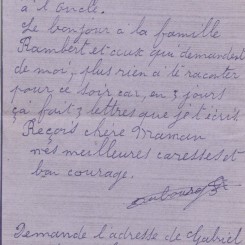 à l'Oncle.
Le bonjour à la famille
Rambert et ceux qui demandent
de moi, plus rien a te raconter
pour ce soir car, en 3 jours
ça fait 3 lettres que je t'écris
Reçois chère Maman
mes meilleures caresses et
bon courage.
Demande l'adresse de Gabriel